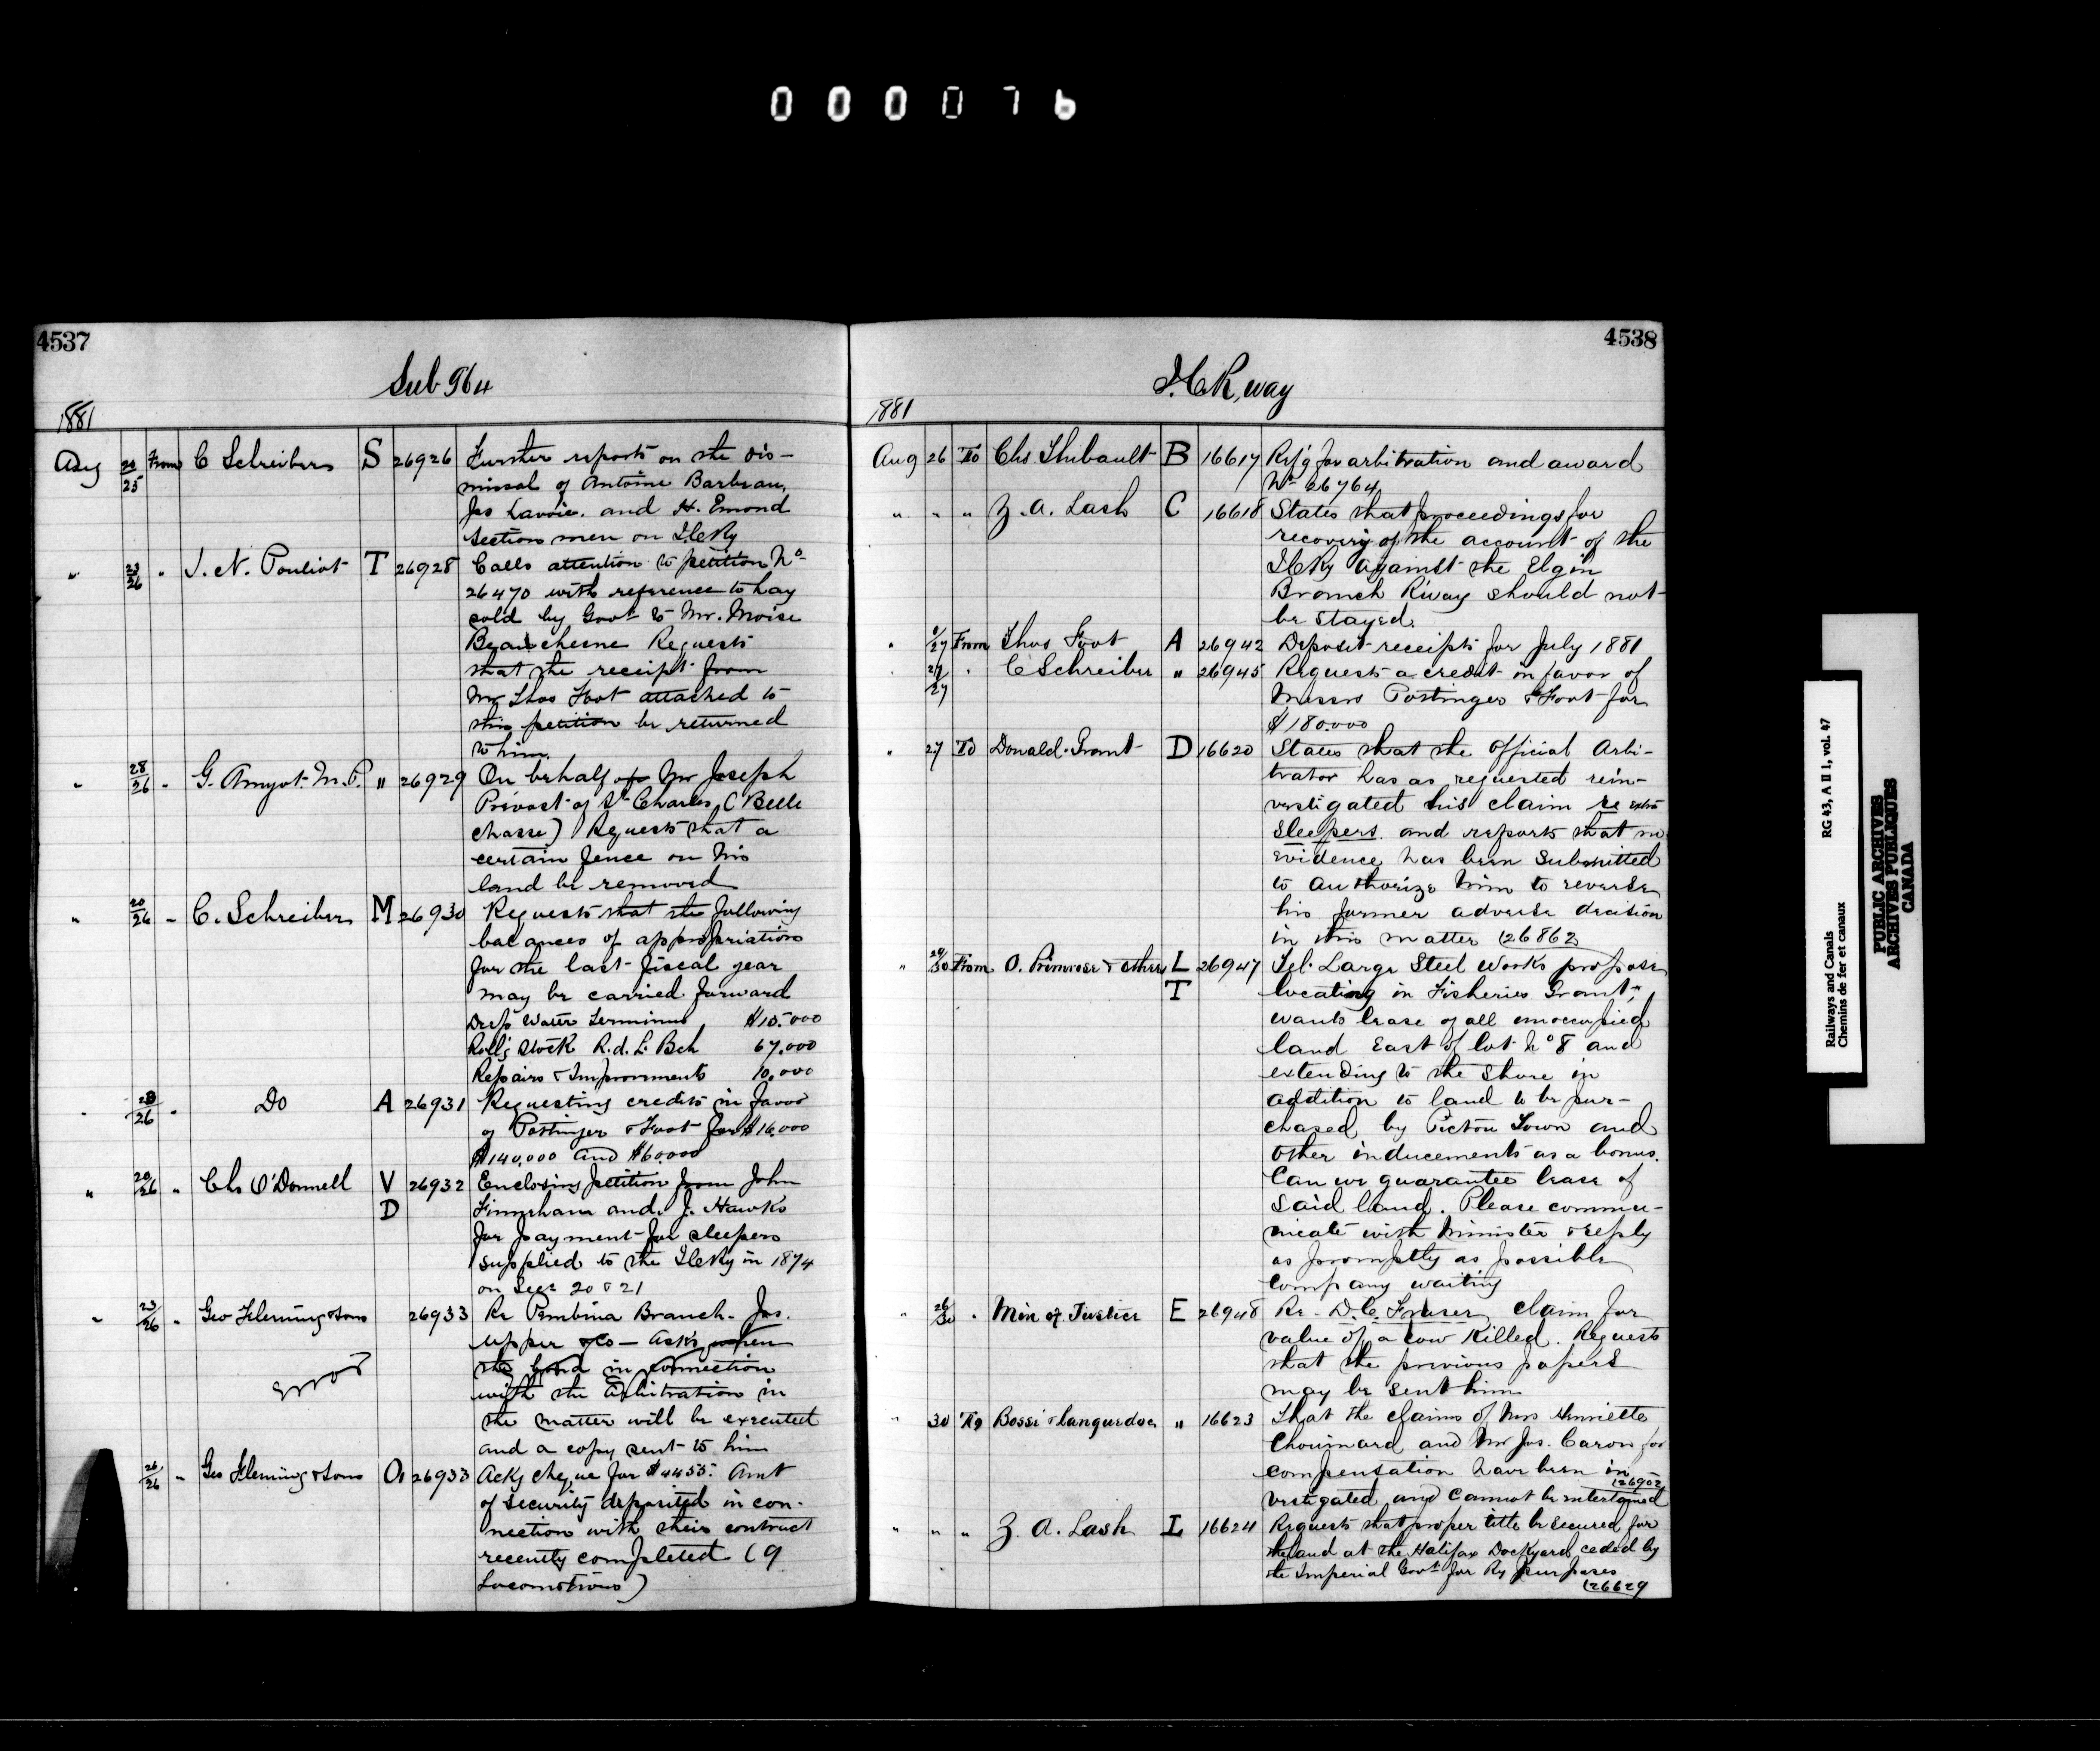 000076
4537
Sub 564
1881
Aug 20/25 From C Schreiber S 26926 Further reports on the dis-
missal of Antoine Barbeau,
Jos Lavoie. and H. Emond
Section men on ICRy
" 23/26 " J. N. Pouliot T 26928 Calls attention to petition No
26470 with reference to hay
sold by Govt to Mr. Moise
Beauchesne Requests
that the receipt from
Mr Thos Foot attached to
this petition be returned
to him.
" 28/26 " G. Amyot M.P. " 26929 On behalf of Mr Joseph
Prévost of St Charles (Belle
chasse) Requests that a
certain fence on his
land be removed
" 20/26 " C. Schreiber M 26930 Requests that the following
balances of appropriation
for the last fiscal year
may be carried forward
Deep Water Terminus $15.000
Roll'g Stock R.d.L. Bch 67.000
Repairs & Improvements 10,000
" 23/26 " Do A 26931 Requesting credits in favor
of Pottinger & Foot for $16,000
$140,000 and $60000
" 20/26 " Chs O'Donnell V 26932 Enclosing petition from John
D Finnehan and J. Hawks
for payment for sleepers
supplied to the ICRy in 1874
on Secs 20 & 21
" 23/26 " Geo Fleming & Sons 26933 Re Pembina Branch. Jos.
Upper & Co — Asks when
the bond in connection
error with the Arbitration in
the matter will be executed
and a copy sent to him
26/26 " Geo Fleming & Sons O 26933 Ackg cheque for $4455. Amt
of security deposited in con-
nection with their contract
recently completed (9
Locomotives)
4538
I.C.R,way
1881
Aug 26 To Chs. Thibault B 16617 Refg for arbitration and award
No 26764
" " " Z. A. Lash C 16618 States that proceedings for
recovery of the account of the
ICRy against the Elgin
Branch R'way should not
be stayed.
" /27 From Thos Foot A 26942 Deposit receipts for July 1881
" 27/27 " C Schreiber " 26945 Requests a credit in favor of
Messrs Pottinger & Foot for
$180.000
" 27 To Donald Grant D 16620 States that the Official Arbi-
trator has as requested rein-
vestigated his claim re extra
sleepers and reports that no
evidence has been submitted
to authorize him to reverse
his former adverse decision
in this matter (26862
" 29/30 From O. Primrose & others L 26947 Tel. Large Steel Works propose
T locating in Fisheries Grant,
wants lease of all unoccupied
land East of lot No 8 and
extending to the shore in
addition to land to be pur-
chased by Pictou Town and
other inducements as a bonus.
Can we guarantee lease of
said land. Please commu-
nicate with Minister & reply
as promptly as possible
Company waiting
" 26/30 " Min of Justice E 26948 Re. D. C. Fraser claim for
value of a cow killed. Requests
that the previous papers
may be sent him
" 30 To Bossé & Languedoc " 16623 That the claims of Mrs Henriette
Chouinard and Mr Jos. Caron for
compensation have been in
(26902
vestigated and cannot be entertained
" " " Z. A. Lash L 16624 Requests that proper title be secured for
the land at the Halifax Dockyard ceded by
the Imperial Govt for Ry purposes
(26629
Railways and Canals RG 43, A II 1, vol. 47
Chemins de fer et canaux
PUBLIC ARCHIVES
ARCHIVES PUBLIQUES
CANADA